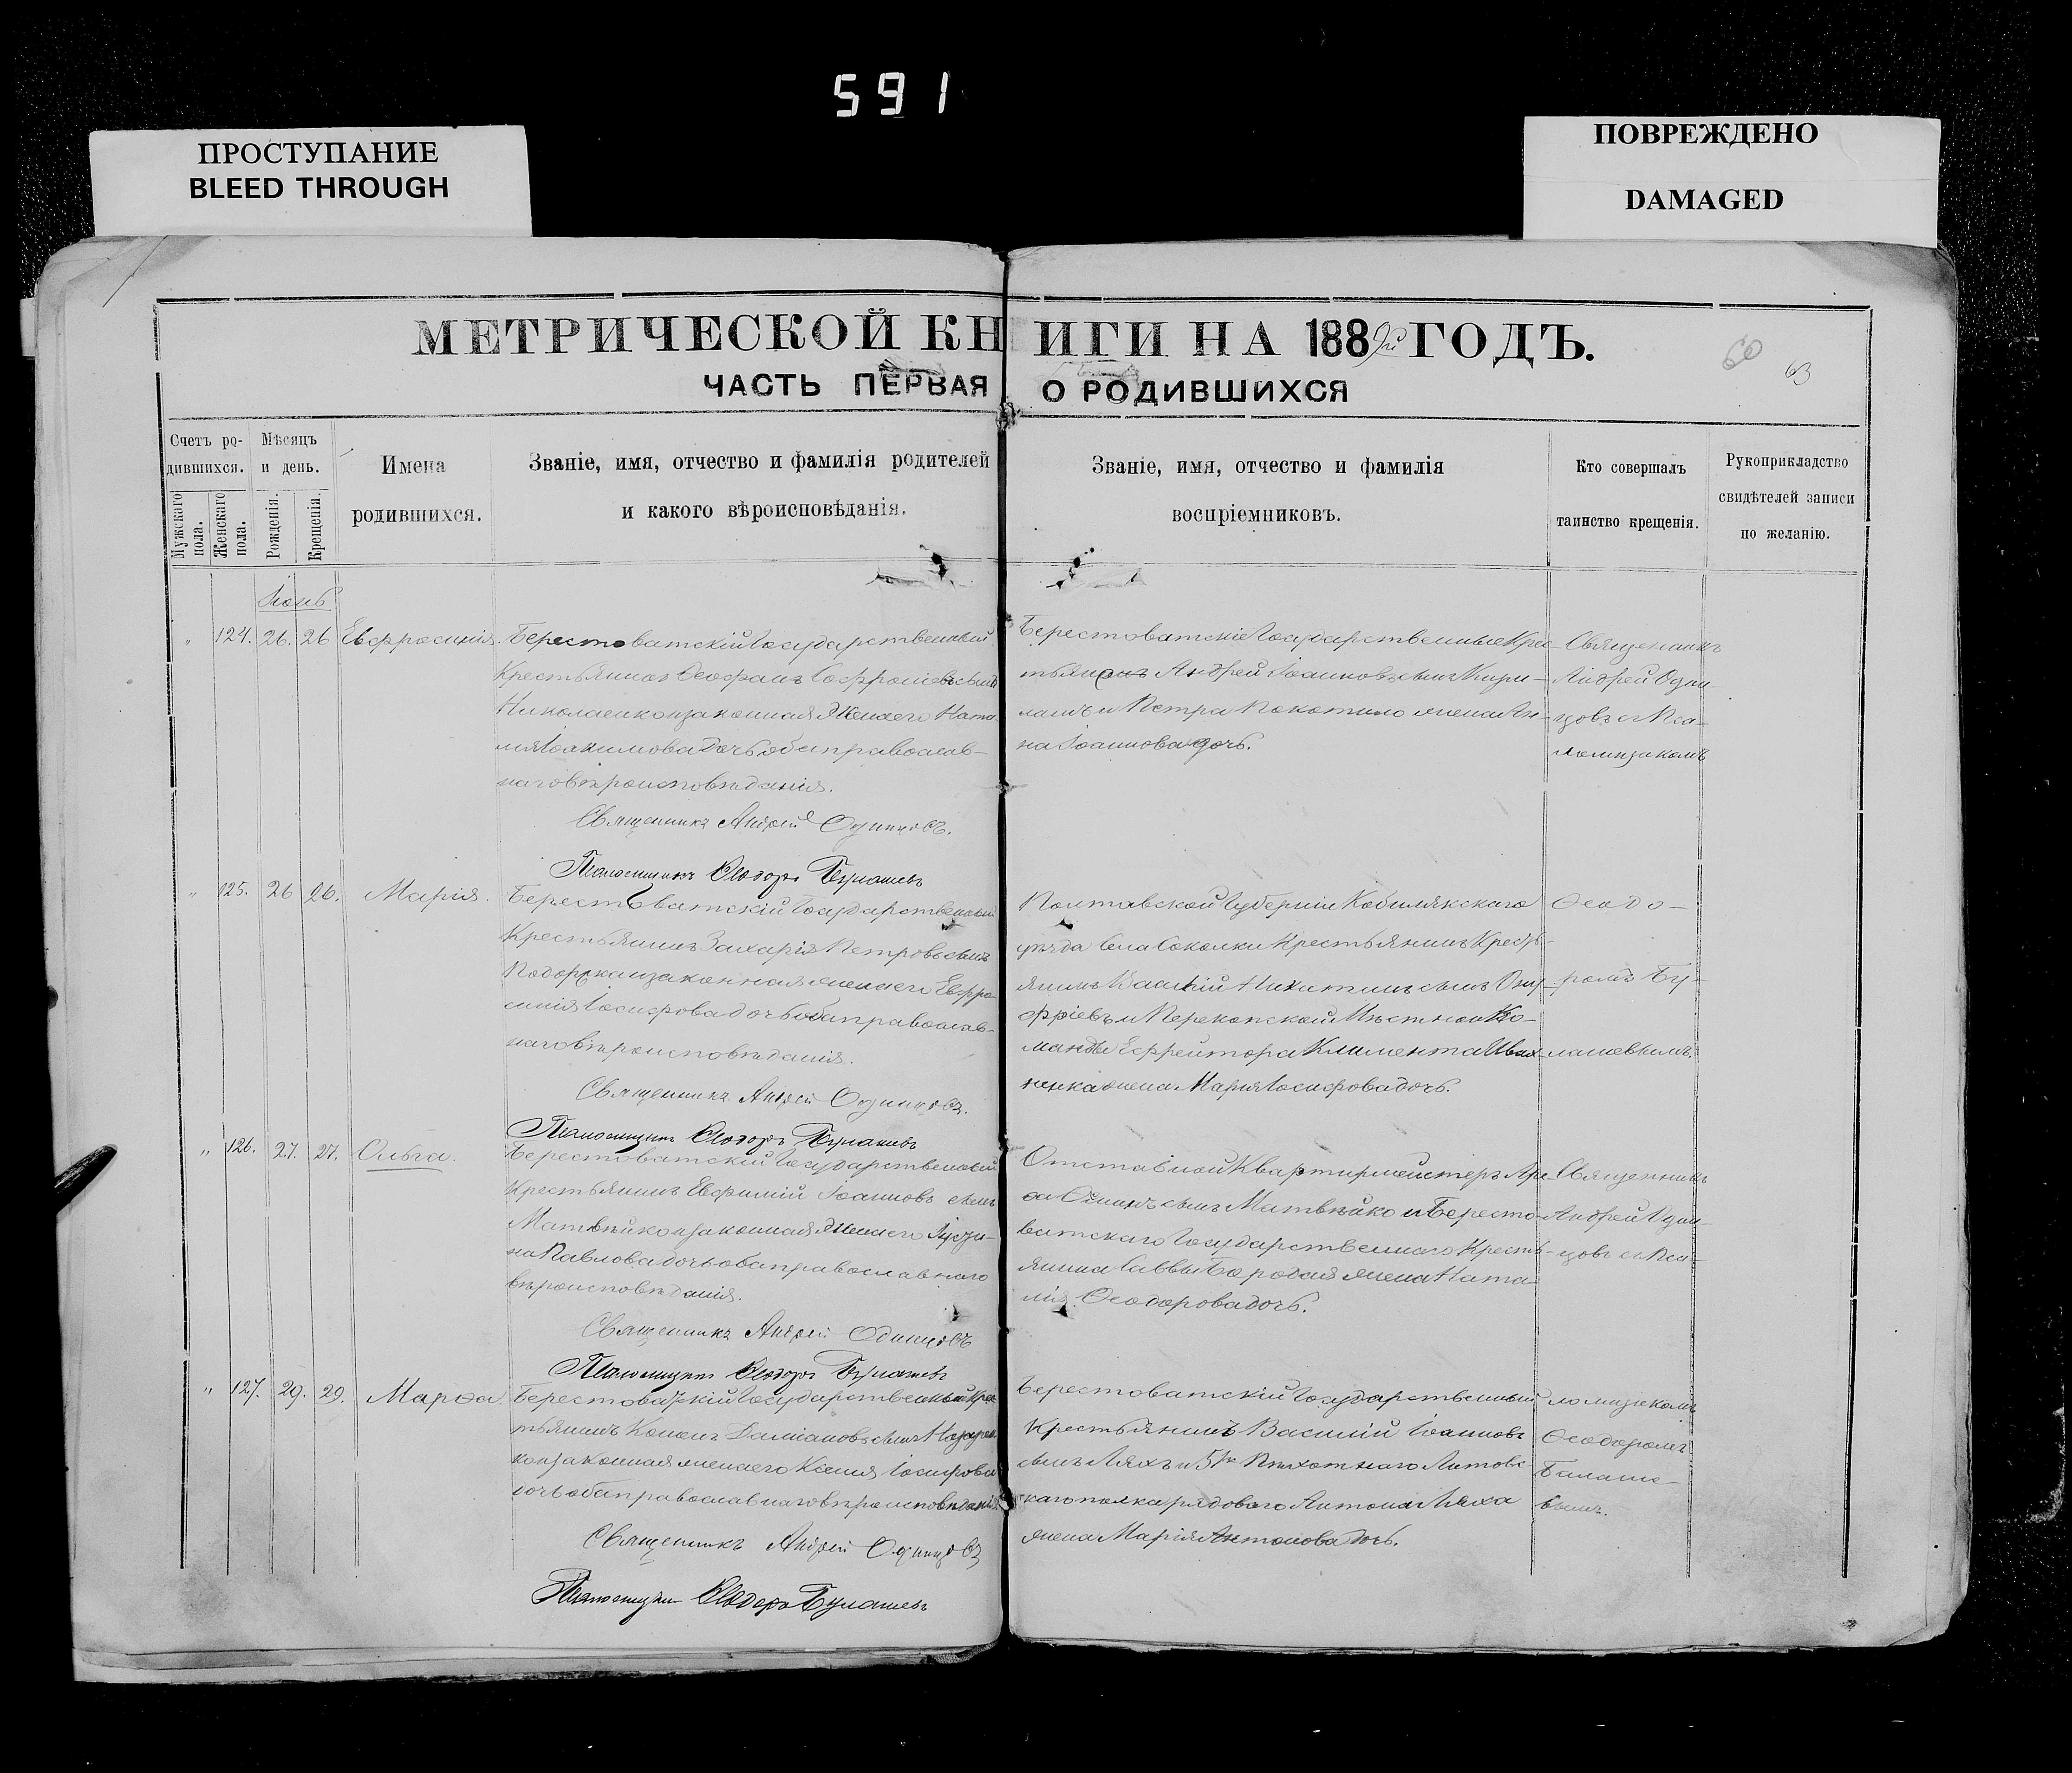 591
ПРОСТУПАНИЕ
BLEED THROUGH
ПОВРЕЖДЕНО
DAMAGED
МЕТРИЧЕСКОЙ КНИГИ НА 188 ГОДЪ.
60
63
ЧАСТЬ ПЕРВАЯ О РОДИВШИХСЯ
Счетъ ро-
дившихся.
Мужскаго пола.
Женскаго пола.
Мѣсяцъ
и день.
Рожденія.
Крещенія.
Имена
родившихся.
Званіе, имя, отчество и фамилія родителей
и какого вѣроисповѣданія.
Званіе, имя, отчество и фамилія
воспріемниковъ.
Кто совершалъ
таинство крещенія.
Рукоприкладство
свидѣтелей записи
по желанію.
Іюнь
„ 124. 26. 26 Евфросинія.
Берестоватскій Государственный
Крестьянинъ Ѳеофанъ Софроніевъ сынъ
Николаенко и законная жена его Ната-
лія Іоакимова дочь оба православ-
наго вѣроисповѣданія.
Священникъ Андрей Одинцовъ.
Псаломщикъ Ѳеодоръ Булашевъ
Берестоватскіе Государственные Крес-
тьяне Андрей Іоанновъ сынъ
и Петра Покотило жена Ан-
на Іоаннова дочь.
Священникъ
Андрей Один-
цовъ съ Пса-
ломщикомъ
„ 125. 26 26. Марія.
Берестоватскій Государственный
Крестьянинъ Захарія Петровъ сынъ
и законная жена его Евфро-
синія Іосифова дочь оба православ-
наго вѣроисповѣданія.
Священникъ Андрей Одинцовъ.
Псаломщикъ Ѳеодоръ Булашевъ
Полтавской Губерніи Кобылякскаго
уѣзда Села Соколки Крестьянинъ Кресть-
янинъ Василій Никитинъ сынъ Ону-
фріевъ и Перекопской Мѣстной Ко-
манды Ефрейтора Климента
жена Марія Іосифова дочь.
Ѳеодо-
ромъ Бу-
лашевымъ.
„ 126. 27. 27. Ольга.
Берестоватскій Государственный
Крестьянинъ Евфимій Іоанновъ сынъ
Матвѣйко и законная жена его
Павлова дочь оба православнаго
вѣроисповѣданія.
Священникъ Андрей Одинцовъ
Псаломщикъ Ѳеодоръ Булашевъ
Отставной Квартирмейстеръ
сынъ Матвѣйко и Бересто-
ватскаго Государственнаго Кресть-
янина Саввы Бородая жена Ната-
лія Ѳеодорова дочь.
Священникъ
Андрей Один-
цовъ съ Пса-
„ 127. 29. 29. Марѳа.
Берестоватскій Государственный Крес-
тьянинъ Кононъ Даміановъ сынъ Назарен-
ко и законная жена его Ксенія Іосифова
дочь оба православнаго вѣроисповѣданія.
Священникъ Андрей Одинцовъ
Псаломщикъ Ѳеодоръ Булашевъ
Берестоватскій Государственный
Крестьянинъ Василій Іоанновъ
сынъ Ляхъ и 5го Пѣхотнаго Литовс-
каго полка рядового Антона Ляха
жена Марія Антонова дочь.
ломщикомъ
Ѳеодоромъ
Булаше-
вымъ.